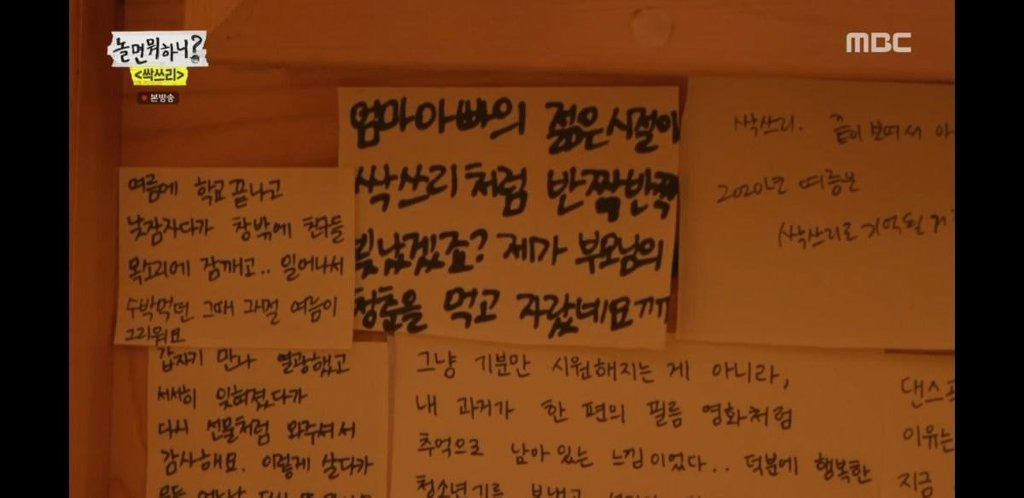 놀면 뭐하니?
<싹쓰리>
본방송
MBC
엄마아빠의 젊은시절이
싹쓰리처럼 반짝반짝
빛났겠죠? 제가 부모님의
청춘을 먹고 자랐네요ㄲㄲ
여름에 학교 끝나고
낮잠자다가 창밖에 친구들
목소리에 잠깨고.. 일어나서
수박먹던 그때 그 여름이
그리워요
싹쓰리. 끝이 보여서 아
2020년 여름은
싹쓰리로 기억될 거
갑자기 만나 열광했고
서서히 잊혀졌다가
다시 선물처럼 와주셔서
감사해요. 이렇게 살다가
그냥 기분만 시원해지는 게 아니라,
내 과거가 한 편의 필름 영화처럼
추억으로 남아있는 느낌이었다.. 덕분에 행복한
청소년기를 보냈고
댄스
이유는
지금